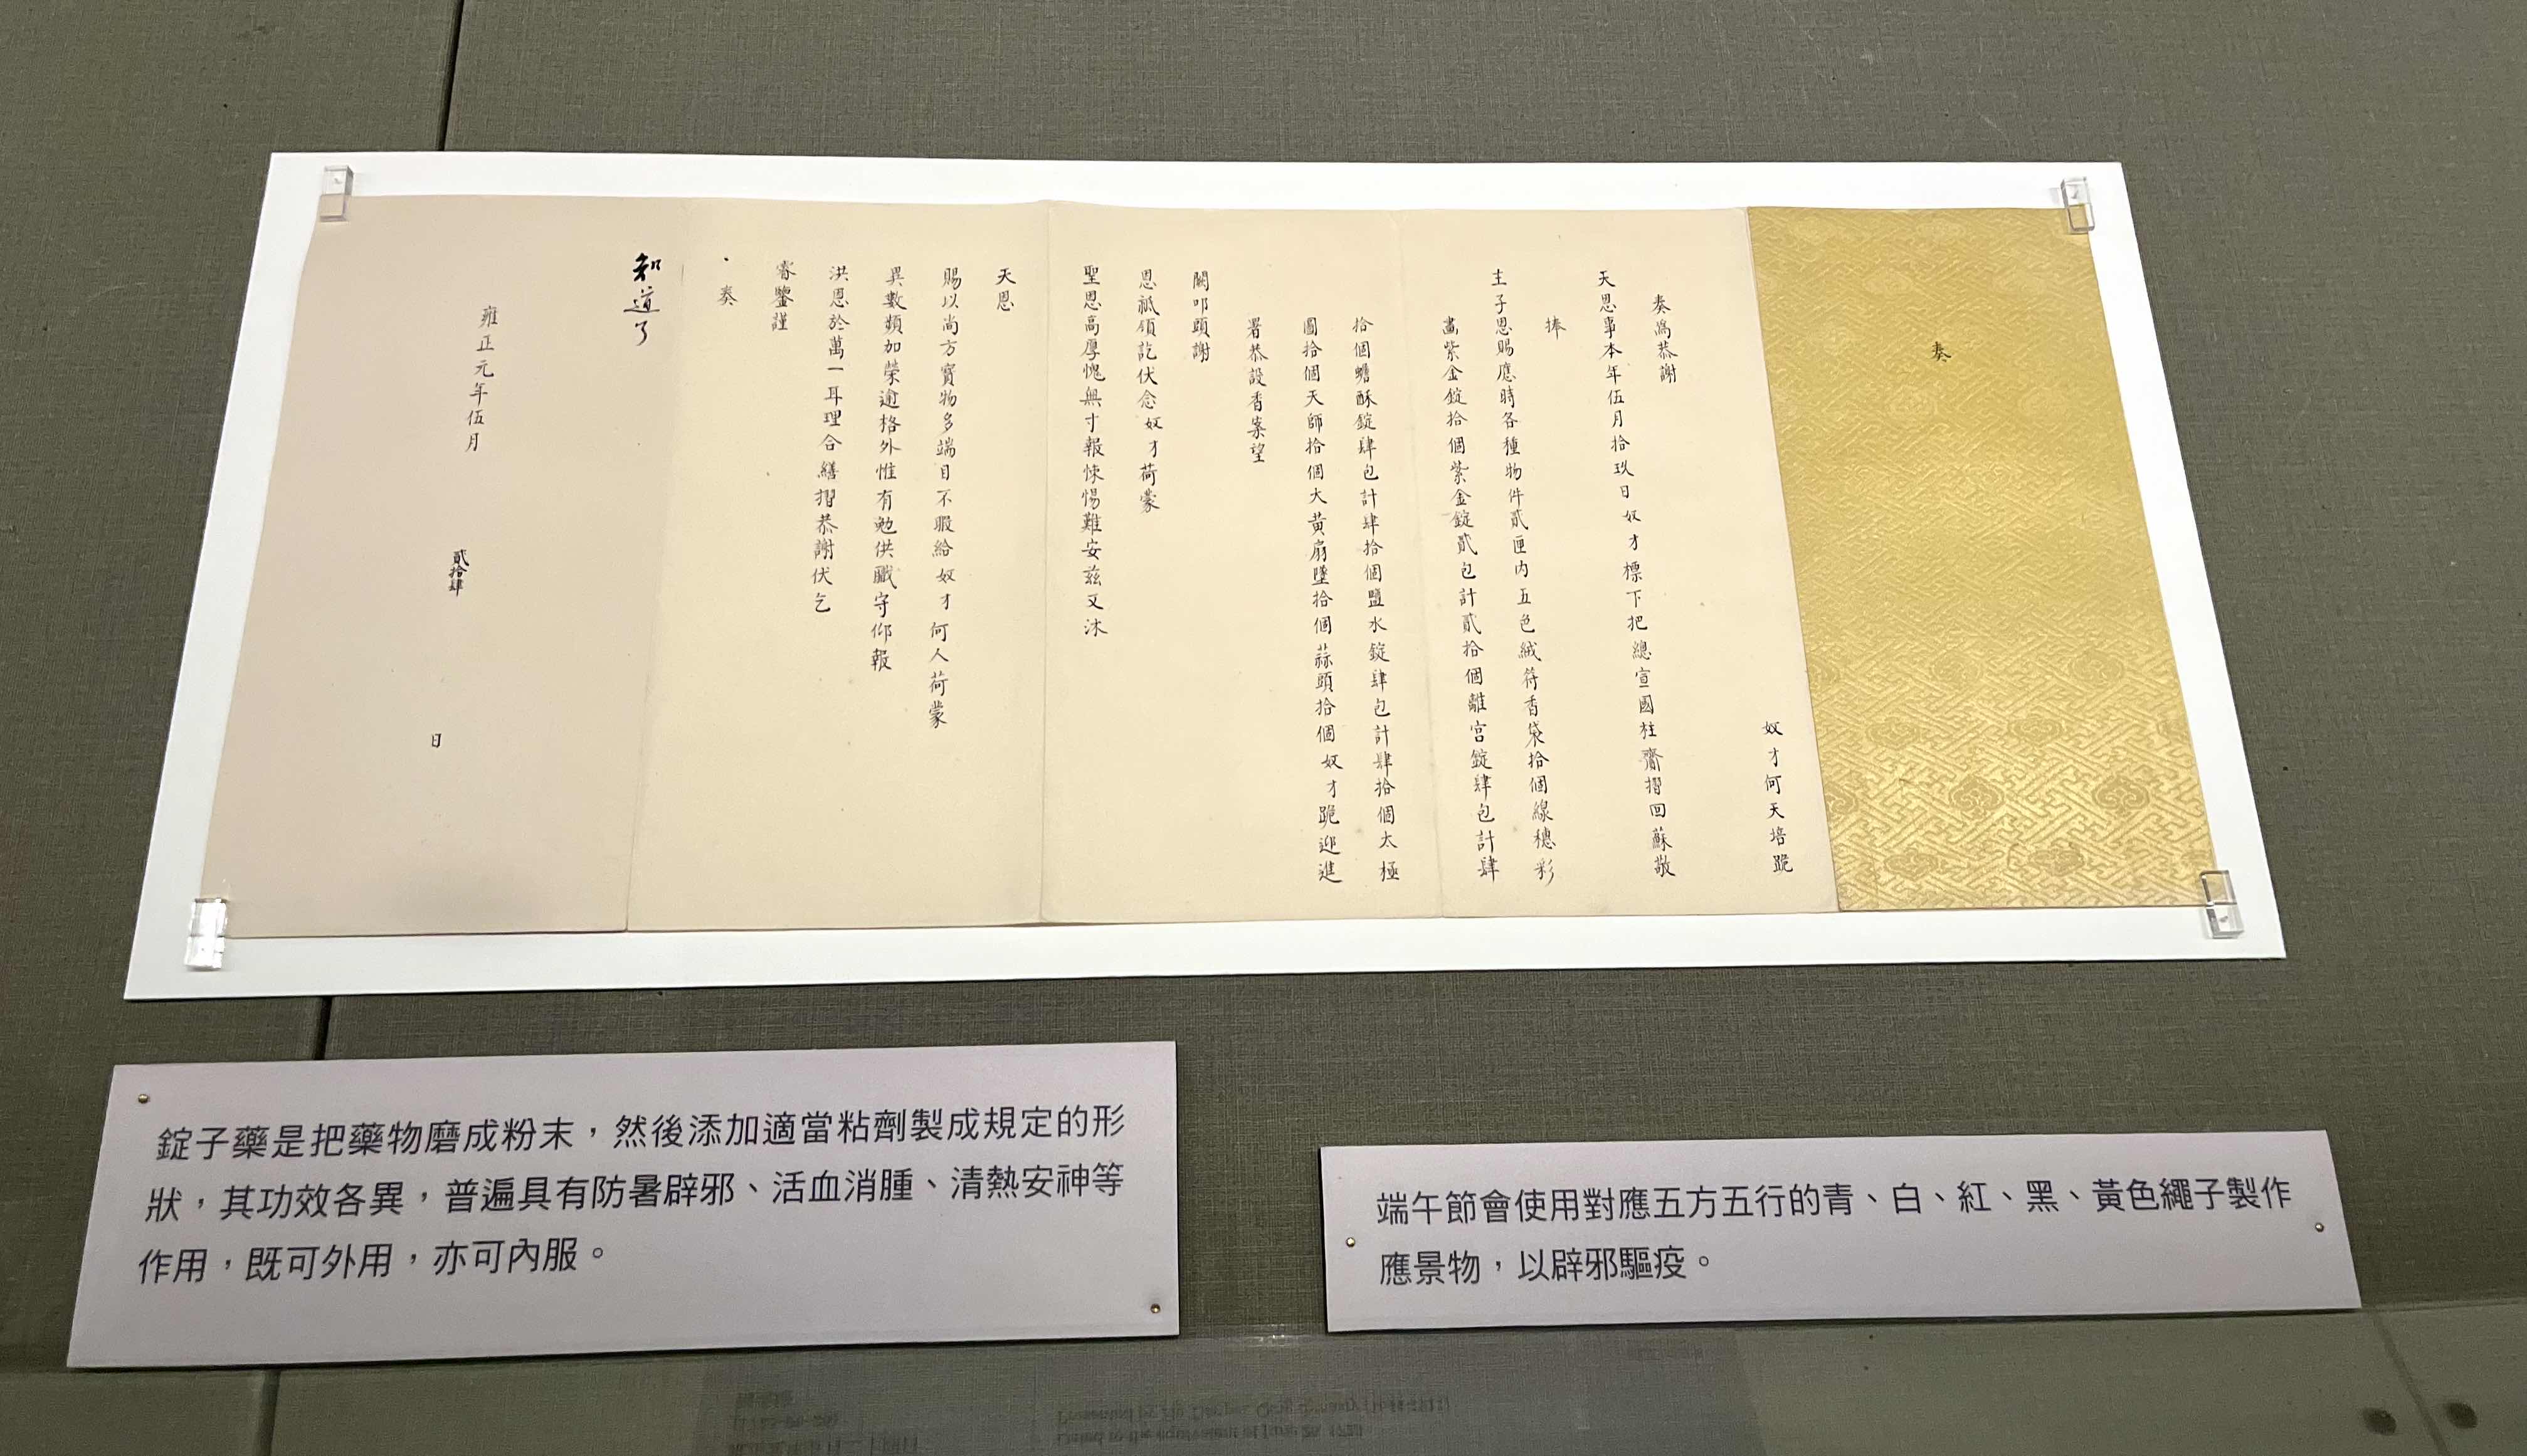 奏
奴才何天培跪
奏為恭謝
天恩事本年伍月拾玖日奴才標下把總宣國柱齎摺回蘇敬
捧
主子恩賜應時各種物件貳匣内五色絨符香袋拾個線穗彩
畫紫金錠拾個紫金錠貳包計貳拾個離宮錠肆包計肆
拾個蟾酥錠肆包計肆拾個鹽水錠肆包計肆拾個太極
圖拾個天師拾個大黄扇墜拾個蒜頭拾個奴才跪迎進
署恭設香案望
闕叩頭謝
恩祗領訖伏念奴才荷蒙
聖恩高厚愧無寸報悚惕難安茲又沐
天恩
賜以尚方寶物多端目不暇給奴才何人荷蒙
異數頻加榮逾格外惟有勉供職守仰報
洪恩於萬一耳理合繕摺恭謝伏乞
睿鑒謹
奏
知道了
雍正元年伍月貳拾肆日
錠子藥是把藥物磨成粉末，然後添加適當粘劑製成規定的形
狀，其功效各異，普遍具有防暑辟邪、活血消腫、清熱安神等
作用，既可外用，亦可內服。
端午節會使用對應五方五行的青、白、紅、黑、黃色繩子製作
應景物，以辟邪驅疫。